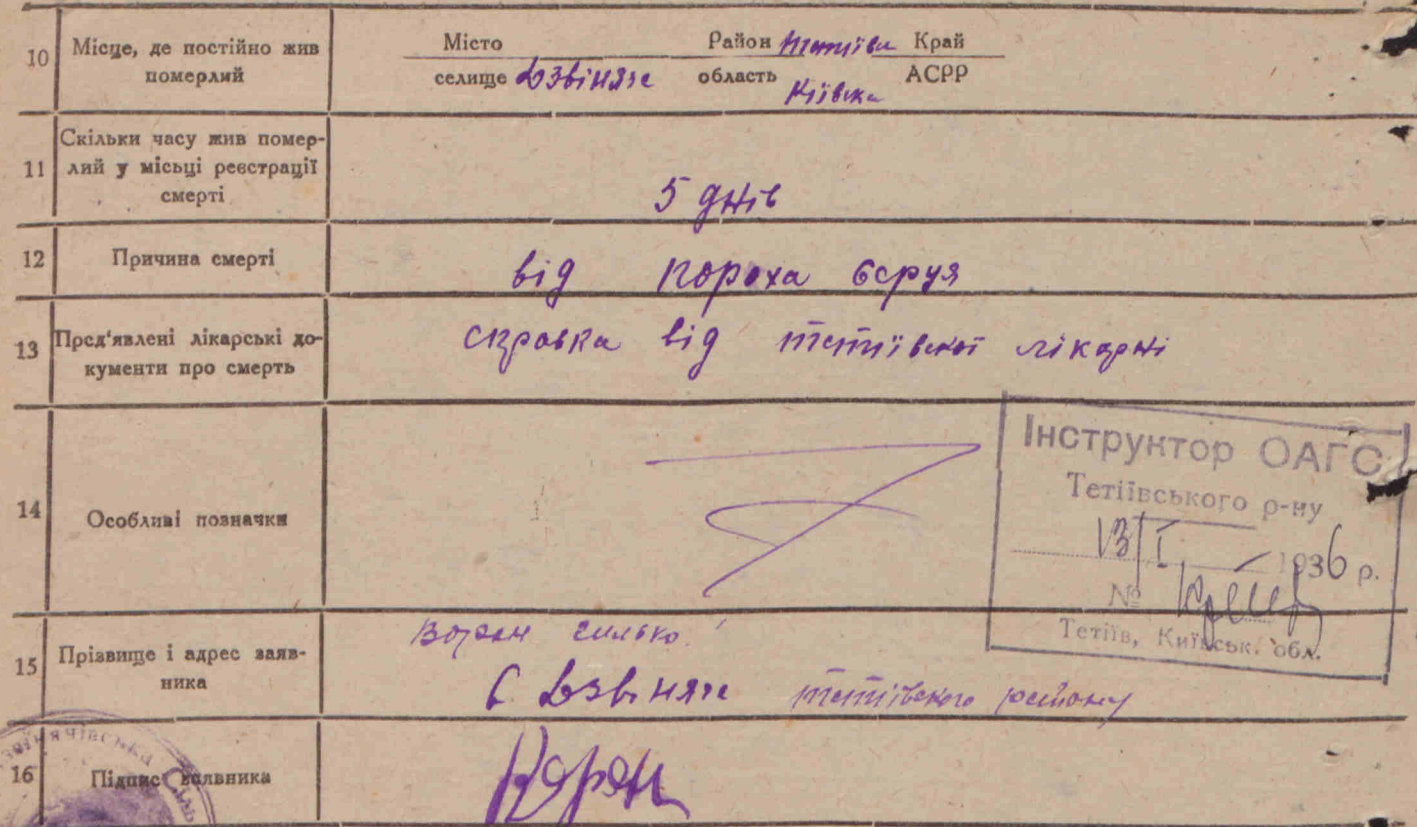 10 Місце, де постійно жив
померлий
Місто Район Край
селище область Київска АСРР
11 Скільки часу жив помер-
лий у місьці реєстрації
смерті
5 днів
12 Причина смерті
від пороха
13 Пред'явлені лікарські до-
кументи про смерть
справка від тетіївскої лікарні
14 Особливі позначки
Інструктор ОАГС
Тетіївського р-ну
13/I 1936 р.
№
Тетіїв, Київськ. обл.
15 Прізвище і адрес заяв-
ника
С тетіївского району
16 Підпис заявника